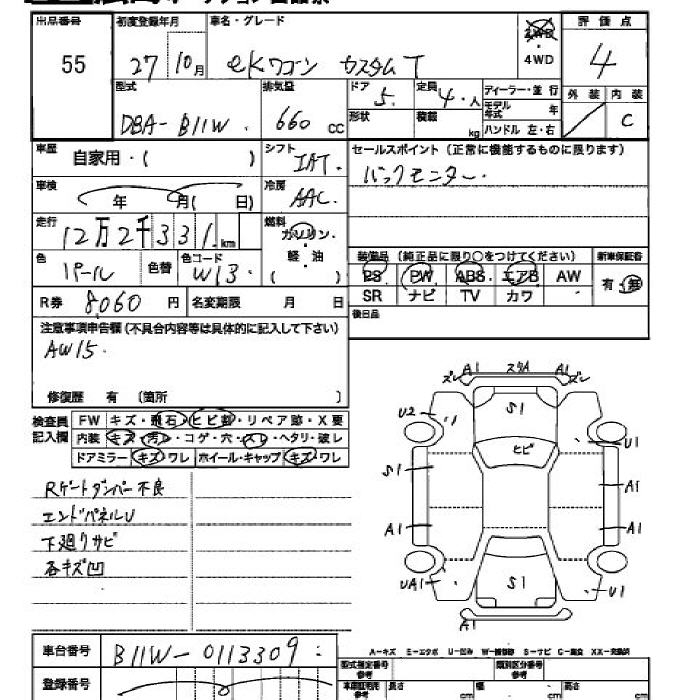 出品番号 初度登録年月 車名・グレード 評価点
55 27 10月 eKワゴン カスタムT 2WD 4WD 4
型式 排気量 ドア 定員 ディーラー・並行 外装 内装
DBA- B11W 660 CC 5. 4.人 モデル年式 年 C
形状 積載 kg ハンドル 左・右
車歴 自家用・( ) シフト IAT. セールスポイント (正常に機能するものに限ります)
車検 年 月( 日) 冷房 AAC. バックモニター.
走行 12万2千331. km 燃料 ガソリン・軽・油
色 パール 色替 色コード W13. ( ) 装備品 (純正品に限り○をつけてください) 新車保証書
PS PW ABS エアB AW 有・無
R券 8,060 円 名変期限 月 日 SR ナビ TV カワ
後日品
注意事項申告欄 (不具合内容等は具体的に記入して下さい)
AW15.
修復歴 有 〔箇所 〕
検査員記入欄 FW キズ・飛石・ヒビ割・リペア跡・X要
内装 キズ・汚レ・コゲ・穴・スレ・ヘタリ・破レ
ドアミラー キズ・ワレ ホイール・キャップ キズ・ワレ
Rゲートダンパー不良
エンドパネルU
下廻りサビ
各キズ凹
ズレ A1 スタA A1 ズレ
U2 S1
ヒビ U1
S1 A1
A1 A1
UA1 S1 U1
A1
A-キズ E-エクボ U-凹み W-補修跡 S-サビ C-腐食 XX-交換済
車台番号 B11W-0113309
型式指定番号 類別区分番号
登録番号 車庫証明用参考 長さ cm 幅 cm 高さ cm